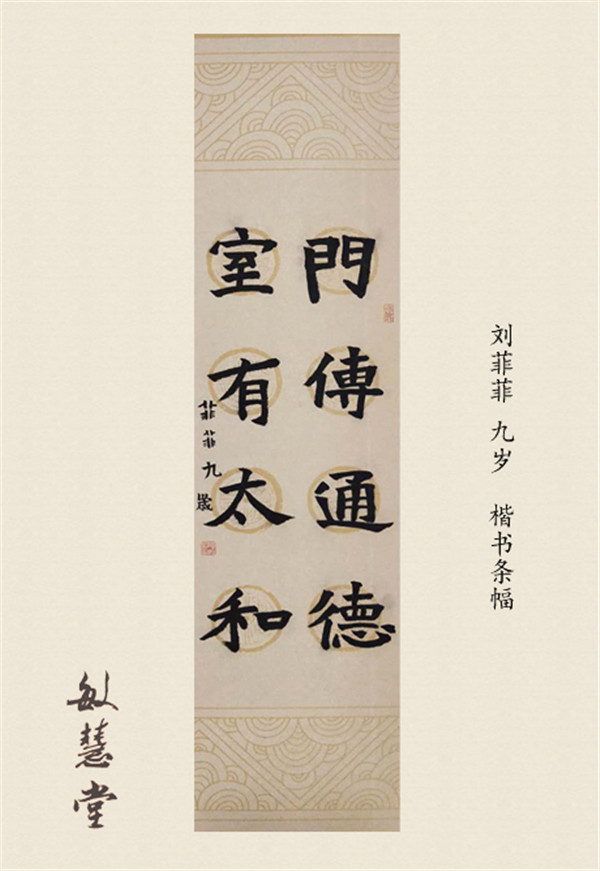 門傳通德
室有太和
菲菲九歲
刘菲菲 九岁 楷书条幅
敏慧堂